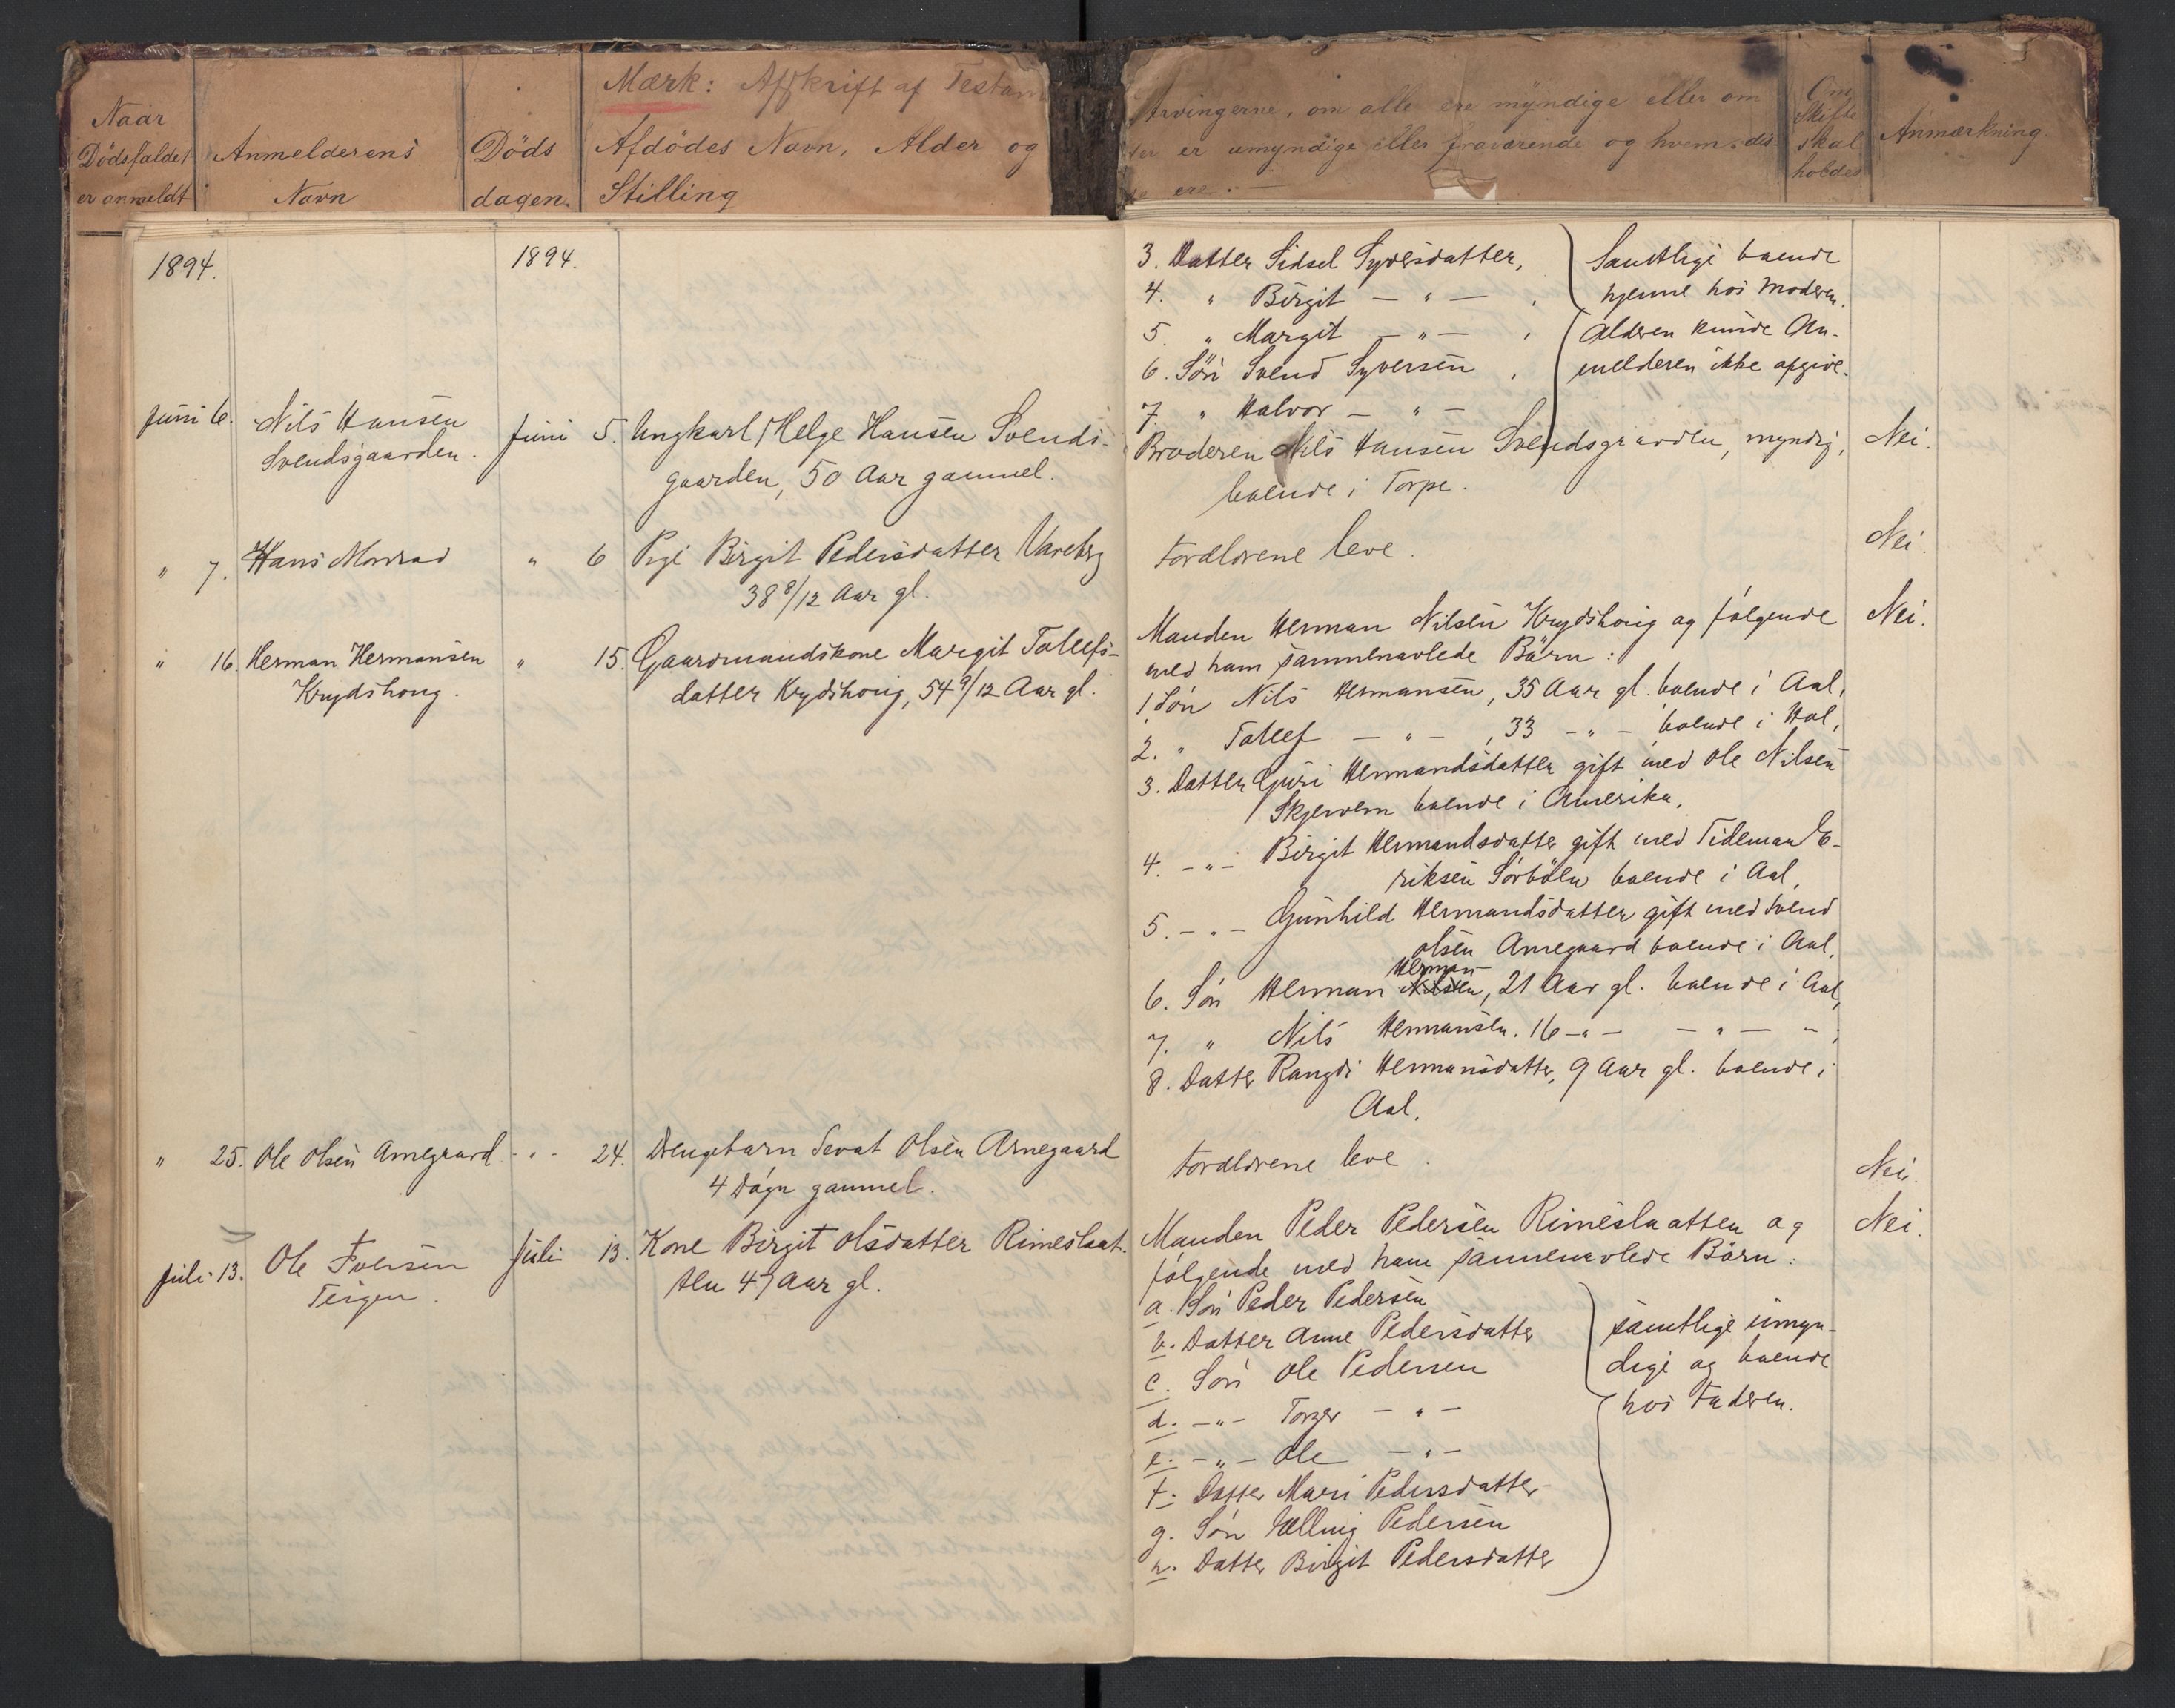 Naar
Dödsfaldet
er anmeldt
Anmelderens
Navn
Döds
dagen.
Mærk: Afskrift af Testam
Afdödes Navn, Alder og
Stilling
Arvingerne, om alle ere myndige eller om
er umyndige eller fraværende og hvem dis
ere.
Om
Skifte
skal
holdes
Anmærkning.
1894.
1894.
3. Datter Sidsel Syversdatter,
4. " Birgit — " — ,
5. " Margit — " — ,
6. Søn Svend Syversen ,
7. " Halvor — " —
Samtlige boende
hjemme hos Moderen.
Alderen kunde An-
melderen ikke opgive.
Juni 6.
Nils Hansen
Svendsgaarden.
Juni 5.
Ungkarl Helge Hansen Svends-
gaarden, 50 Aar gammel.
Broderen Nils Hansen Svendsgaarden, myndig,
boende i Torpe.
Nei.
" 7.
Hans
" 6
Pige Birgit Pedersdatter Vareberg
38 8/12 Aar gl.
Forældrene leve.
Nei.
" 16.
Herman Hermansen
Krydshoug.
" 15.
Gaardmandskone Margit Tollefs-
datter Krydshoug, 54 9/12 Aar gl.
Manden Herman Nilsen Krydshoug og følgende
med ham sammenavlede Börn:
1. Søn Nils Hermansen, 35 Aar gl. boende i Aal,
2. " Tollef — " — , 33 — " — boende i Hol,
3. Datter Guri Hermandsdatter gift med Ole Nilsen
Skjerdem boende i Amerika,
4. — " — Birgit Hermandsdatter gift med Tideman E-
riksen Sørbølen boende i Aal,
5. — " — Gunhild Hermandsdatter gift med Svend
Olsen Arnegaard boende i Aal,
Herman
6. Søn Herman Nilsen, 21 Aar gl. boende i Aal,
7. " Nils Hermansen. 16 — " — — " — " ,
8. Datter Rangdi Hermansdatter, 9 Aar gl. boende i
Aal.
Nei.
" 25.
Ole Olsen Arnegaard
— " — 24.
Drengebarn Sevat Olsen Arnegaard
4 Døgn gammel.
Forældrene leve.
Nei.
Juli 13.
Ole Iversen
Teigen.
Juli 13.
Kone Birgit Olsdatter Rimeslaat-
ten 47 Aar gl.
Manden Peder Pedersen Rimeslaatten og
følgende med ham sammenavlede Börn:
a. Søn Peder Pedersen
b. Datter Anne Pedersdatter
c. Søn Ole Pedersen
d. — " — Torger — " —
e. — " — Ole — " —
f. Datter Mari Pedersdatter
g. Søn Elling Pedersen
h. Datter Birgit Pedersdatter
samtlige umyn-
dige og boende
hos Faderen.
Nei.